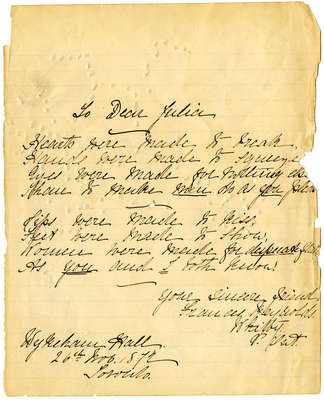 To Dear Julia
Hearts were made to break,
Hands were made to squeeze
Eyes were made for nothing else
Than to make men do as you please
Lips were made to kiss,
Feet were made to show,
Women were made for
As you and I both know.
Your Sincere friend,
Frances Reynolds
Whitby.
P. Ont.
Wykeham Hall.
26th Nov. 187
Toronto.